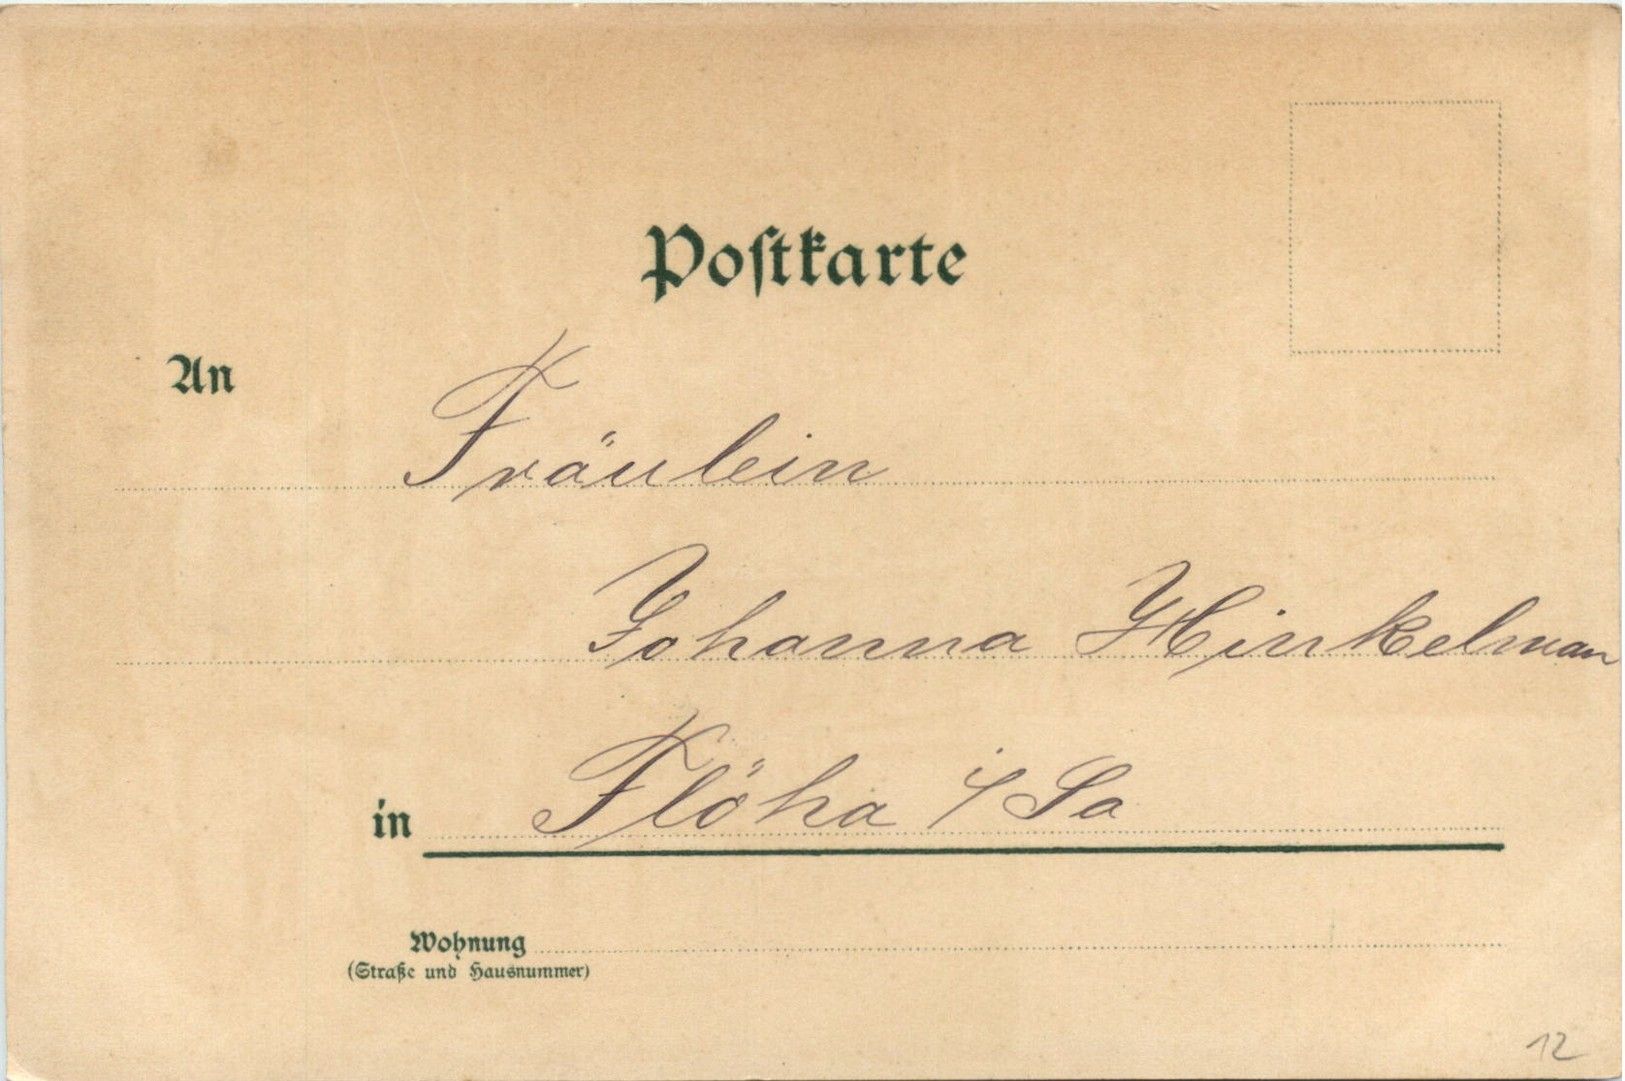 Postkarte
An
Fräulein
Johanna Hinkelman
in Flöha i/Sa
Wohnung
(Straße und Hausnummer)
12